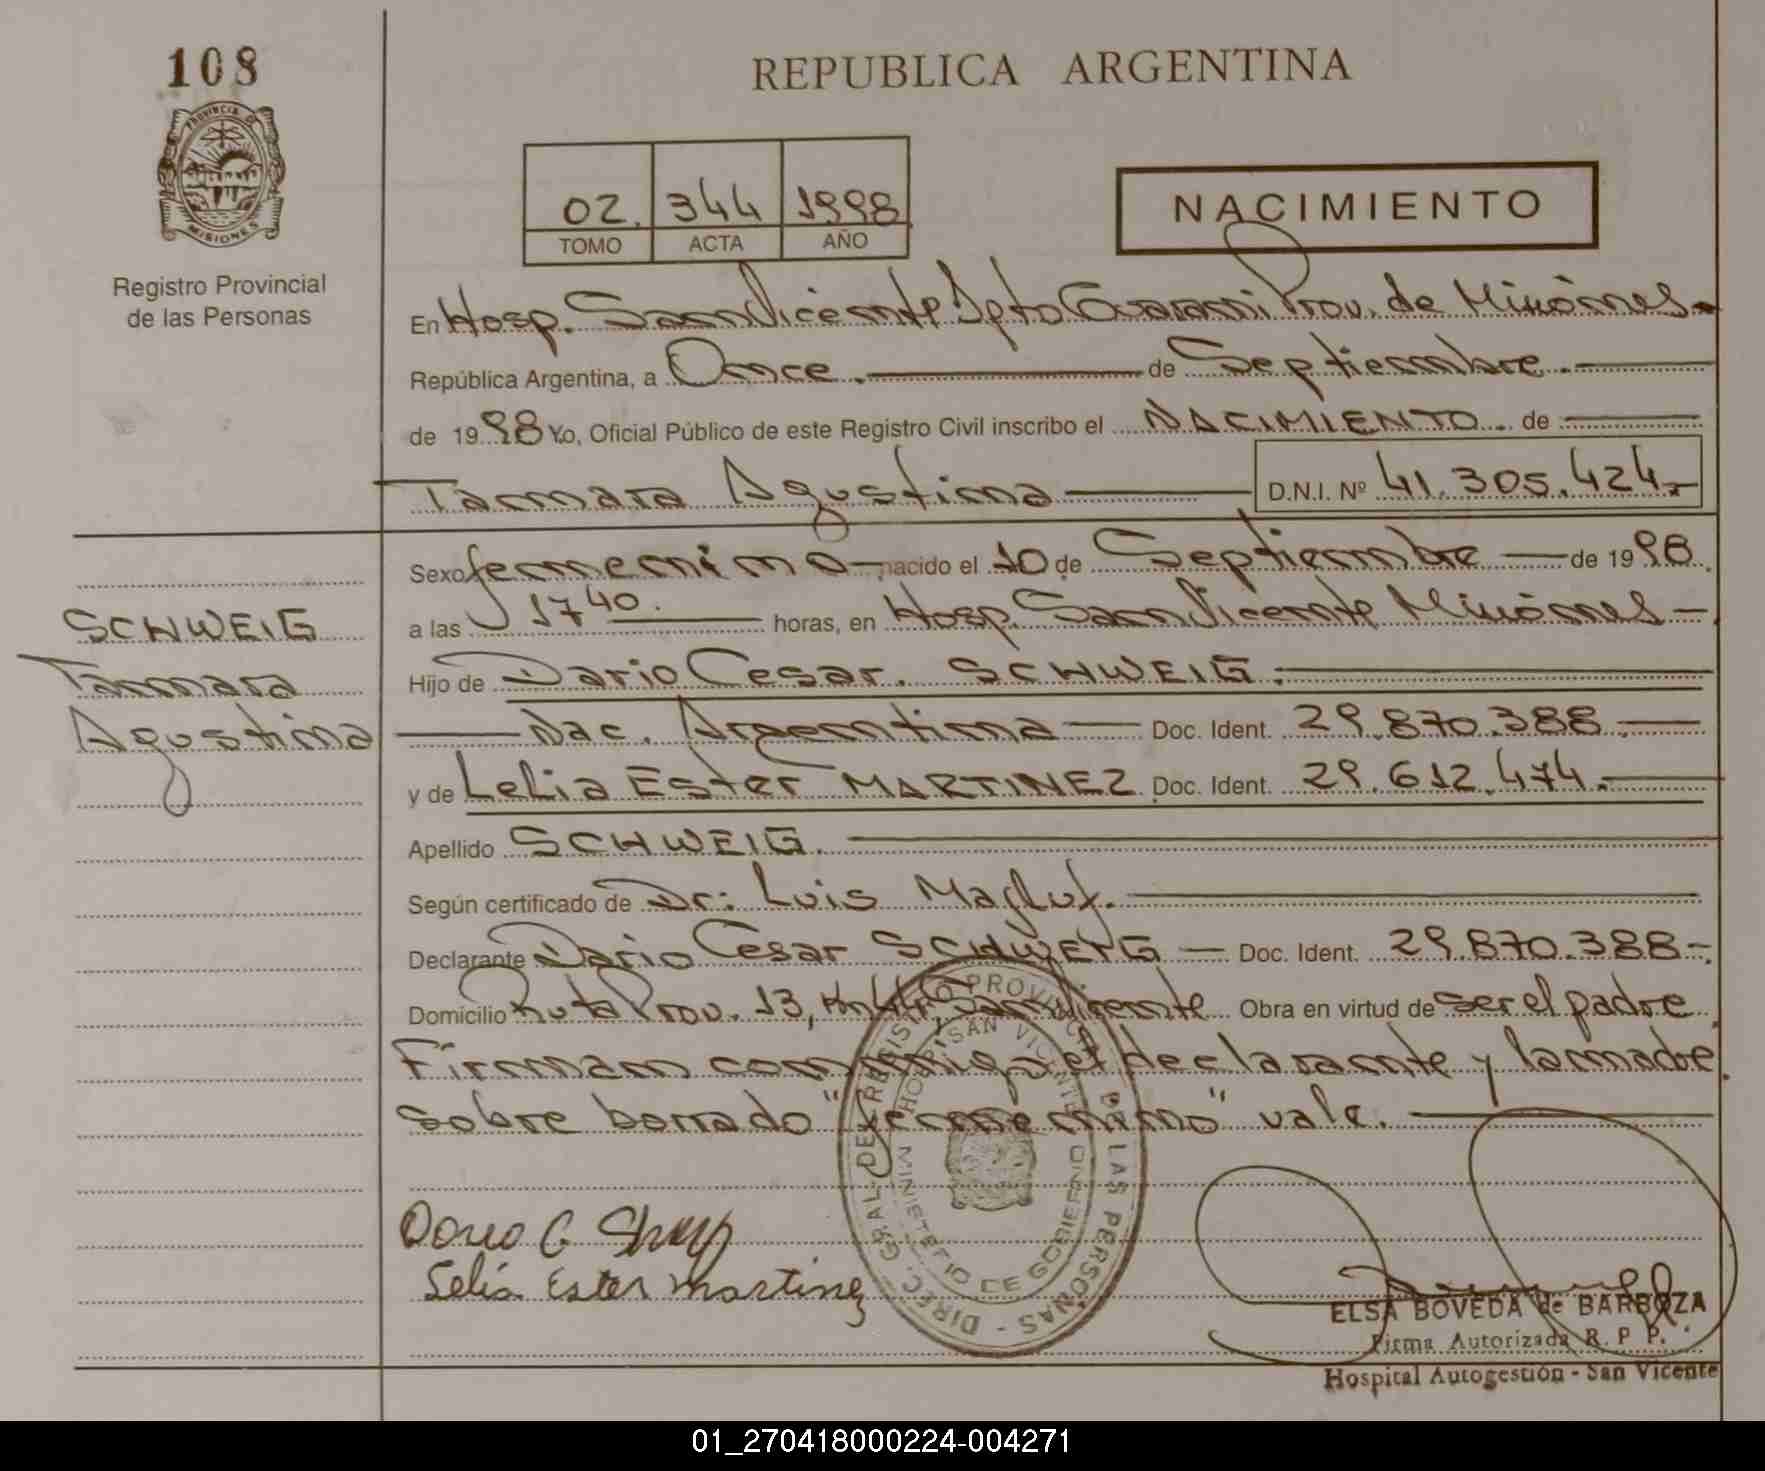 108
REPUBLICA ARGENTINA
PROVINCIA DE
MISIONES
Registro Provincial
de las Personas
02. 344 1998
TOMO ACTA AÑO
NACIMIENTO
En Hosp. San Vicente Dpto Guarani Prov. de Misiones.
República Argentina, a Once. de Septiembre.
de 19 98 Yo, Oficial Público de este Registro Civil inscribo el NACIMIENTO. de
Tamara Agustina D.N.I. Nº 41.305.424.-
Sexo femenino nacido el 10 de Septiembre de 19 98.
a las 17 40. horas, en Hosp. San Vicente Misiones
Hijo de Dario Cesar. SCHWEIG.
Nac. Argentina Doc. Ident. 29.870.388.
y de Lelia Ester MARTINEZ Doc. Ident. 29.612.474.
Apellido SCHWEIG.
Según certificado de Dr: Luis
Declarante Dario Cesar SCHWEIG Doc. Ident. 29.870.388-
Domicilio Ruta Prov. 13, Km San Vicente Obra en virtud de ser el padre
Firman conmigo el declarante y la madre.
sobre borrado "femenino" vale.
SCHWEIG
Tamara
Agustina
DIREC. GRAL. DE REGISTRO PROVINCIAL DE LAS PERSONAS -
HOSP. SAN VICENTE
MINISTERIO DE GOBIERNO
Dario C
Lelia Ester Martinez
ELSA BOVEDA de BARBOZA
Firma Autorizada R. P. P.
Hospital Autogestión - San Vicente
01_270418000224-004271